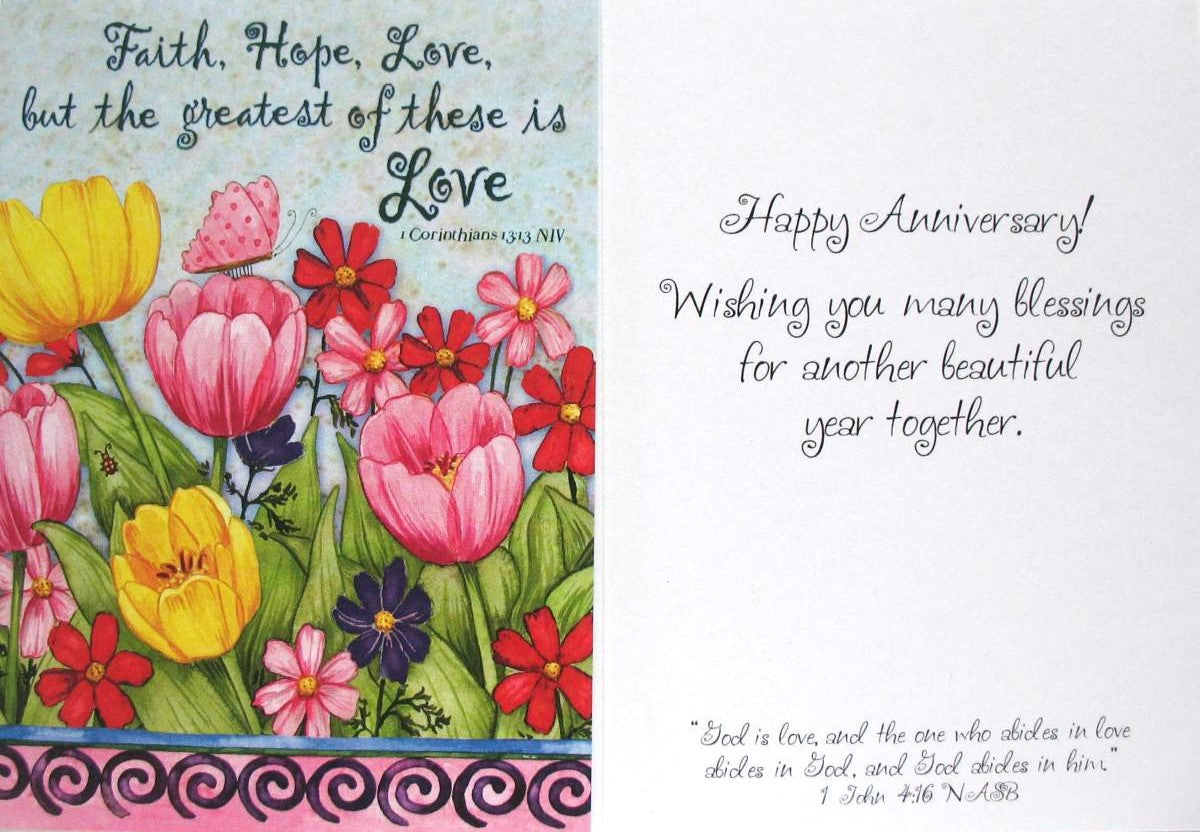 Faith, Hope, Love,
but the greatest of these is
Love
1 Corinthians 13:13 NIV
Happy Anniversary!
Wishing you many blessings
for another beautiful
year together.
"God is love, and the one who abides in love
abides in God, and God abides in him."
1 John 4:16 NASB